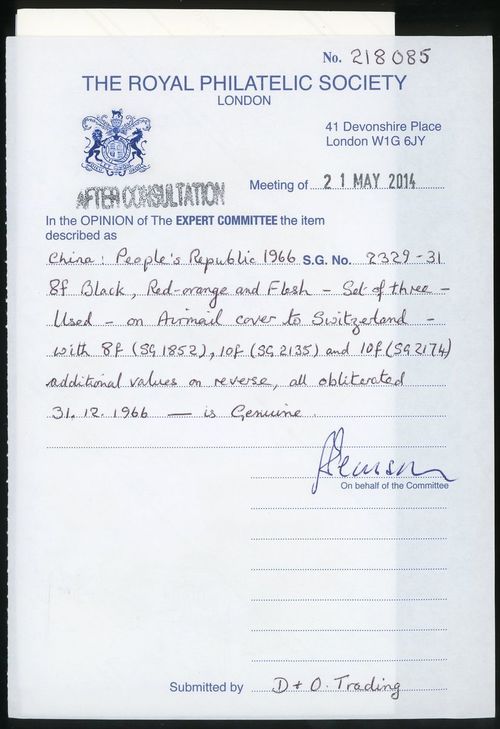 No. 218085
THE ROYAL PHILATELIC SOCIETY
LONDON
41 Devonshire Place
London W1G 6JY
AFTER CONSULTATION
Meeting of 21 MAY 2014
In the OPINION of The EXPERT COMMITTEE the item
described as
China: People's Republic 1966 S.G. No. 2329-31
8f Black, Red-orange and Flesh - Set of three -
Used - on Airmail cover to Switzerland -
with 8f (SG 1852), 10f (SG 2135) and 10f (SG 2174)
additional values on reverse, all obliterated
31.12.1966 — is Genuine.
On behalf of the Committee
Submitted by D + O. Trading